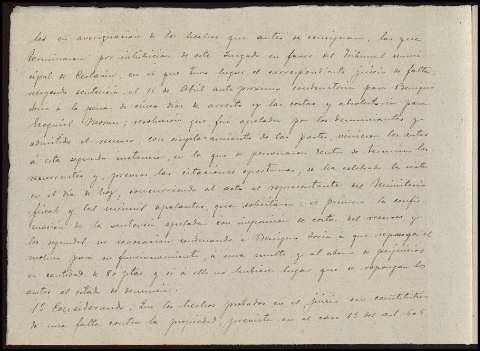 les en averiguacion de los hechos que antes se consignan, las que
terminaron por inhibicion de este Juzgado en favor del Tribunal muni-
cipal de en el que tuvo lugar el correspondiente juicio de faltas,
recayendo sentencia el 15 de Abril ante proximo condenatoria para Benigno
Soria á la pena de cinco dias de arresto y las costas y absolutoria para
Ezequiel Moreno; resolucion que fué apelada por los denunciantes y
admitido el recurso, con emplazamiento de las partes, vinieron los autos
á esta segunda instancia, en la que se personaron dentro de termino los
recurrentes y, previas las citaciones oportunas, se ha celebrado la vista
en el dia de hoy, concurriendo al acto el representante del Ministerio
fiscal y los apelantes, que solicitaron: el primero la confir-
macion de la sentencia apelada con imposicion de costas del recurso y
los segundos su revocacion condenando á Benigno Soria á que reponga el
molino para su funcionamiento, á una multa y al abono de perjuicios
en cantidad de 80 ptas y si á ello no hubiere lugar que se repongan los
autos al estado de denuncia.
1º Considerando: Que los hechos probados en el juicio son constitutivos
de una falta contra la propiedad, prevista en el caso 1º del art. 606